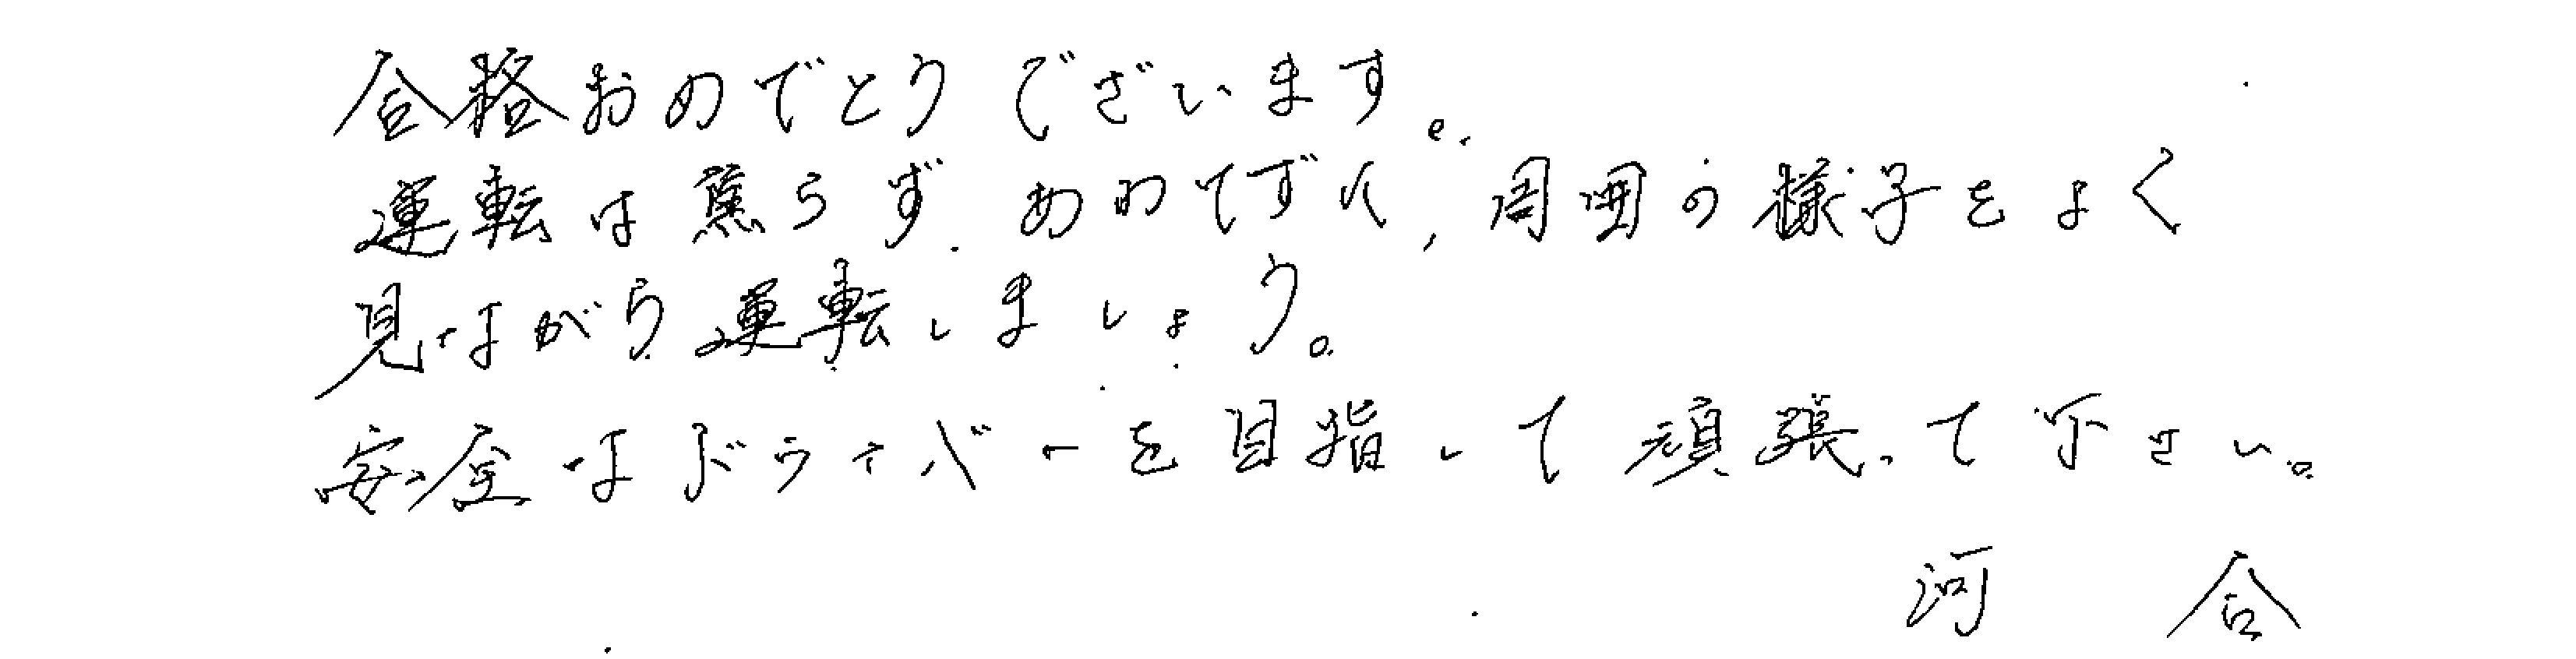 合格おめでとうございます。
運転は焦らず、あわてずに、周囲の様子をよく
見ながら運転しましょう。
安全なドライバーを目指して頑張って下さい。
河合